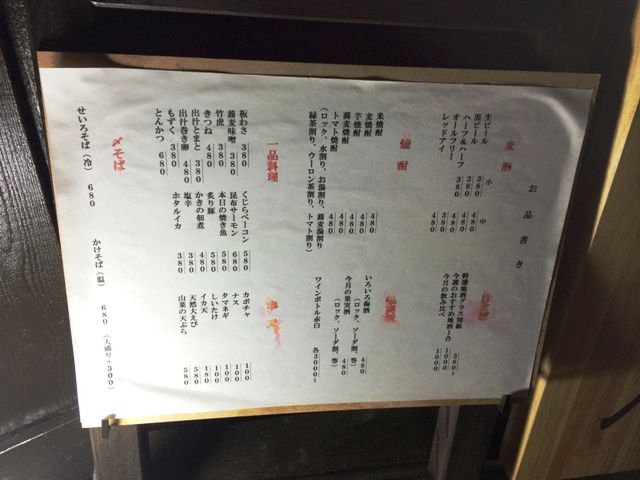 お品書き
麦酒
小 中
生ビール 380 480
黒ビール 380 480
ハーフ&ハーフ 380 480
オールフリー 380
レッドアイ 480
焼酎
米焼酎 480
麦焼酎 480
芋焼酎 480
蕎麦焼酎 480
トマト焼酎 480
(ロック、水割り、お湯割り、蕎麦湯割り
緑茶割り、ウーロン茶割り、トマト割り)
特選地酒グラス別紙 380~
今週のおすすめ地酒1合 1000
今月の飲み比べ 1000
いろいろ梅酒 480
(ロック、ソーダ割、等)
今月の果実酒 480
(ロック、ソーダ割、等)
ワインボトル赤白 各3000~
一品料理
板わさ 380
蕎麦味噌 380
竹虎 380
きつね 480
出汁とまと 380
出汁巻き卵 480
もずく 380
とんかつ 680
くじらベーコン 580
昆布サーモン 680
本日の焼き魚 580
炙り豚 580
かきの佃煮 480
塩辛 380
ホタルイカ 380
串天
カボチャ 100
ナス 100
タマネギ 100
しいたけ 100
イカ天 180
天然大えび 580
山菜の天ぷら 580
〆そば
せいろそば(冷) 680
かけそば(温) 680 (大盛り+300)